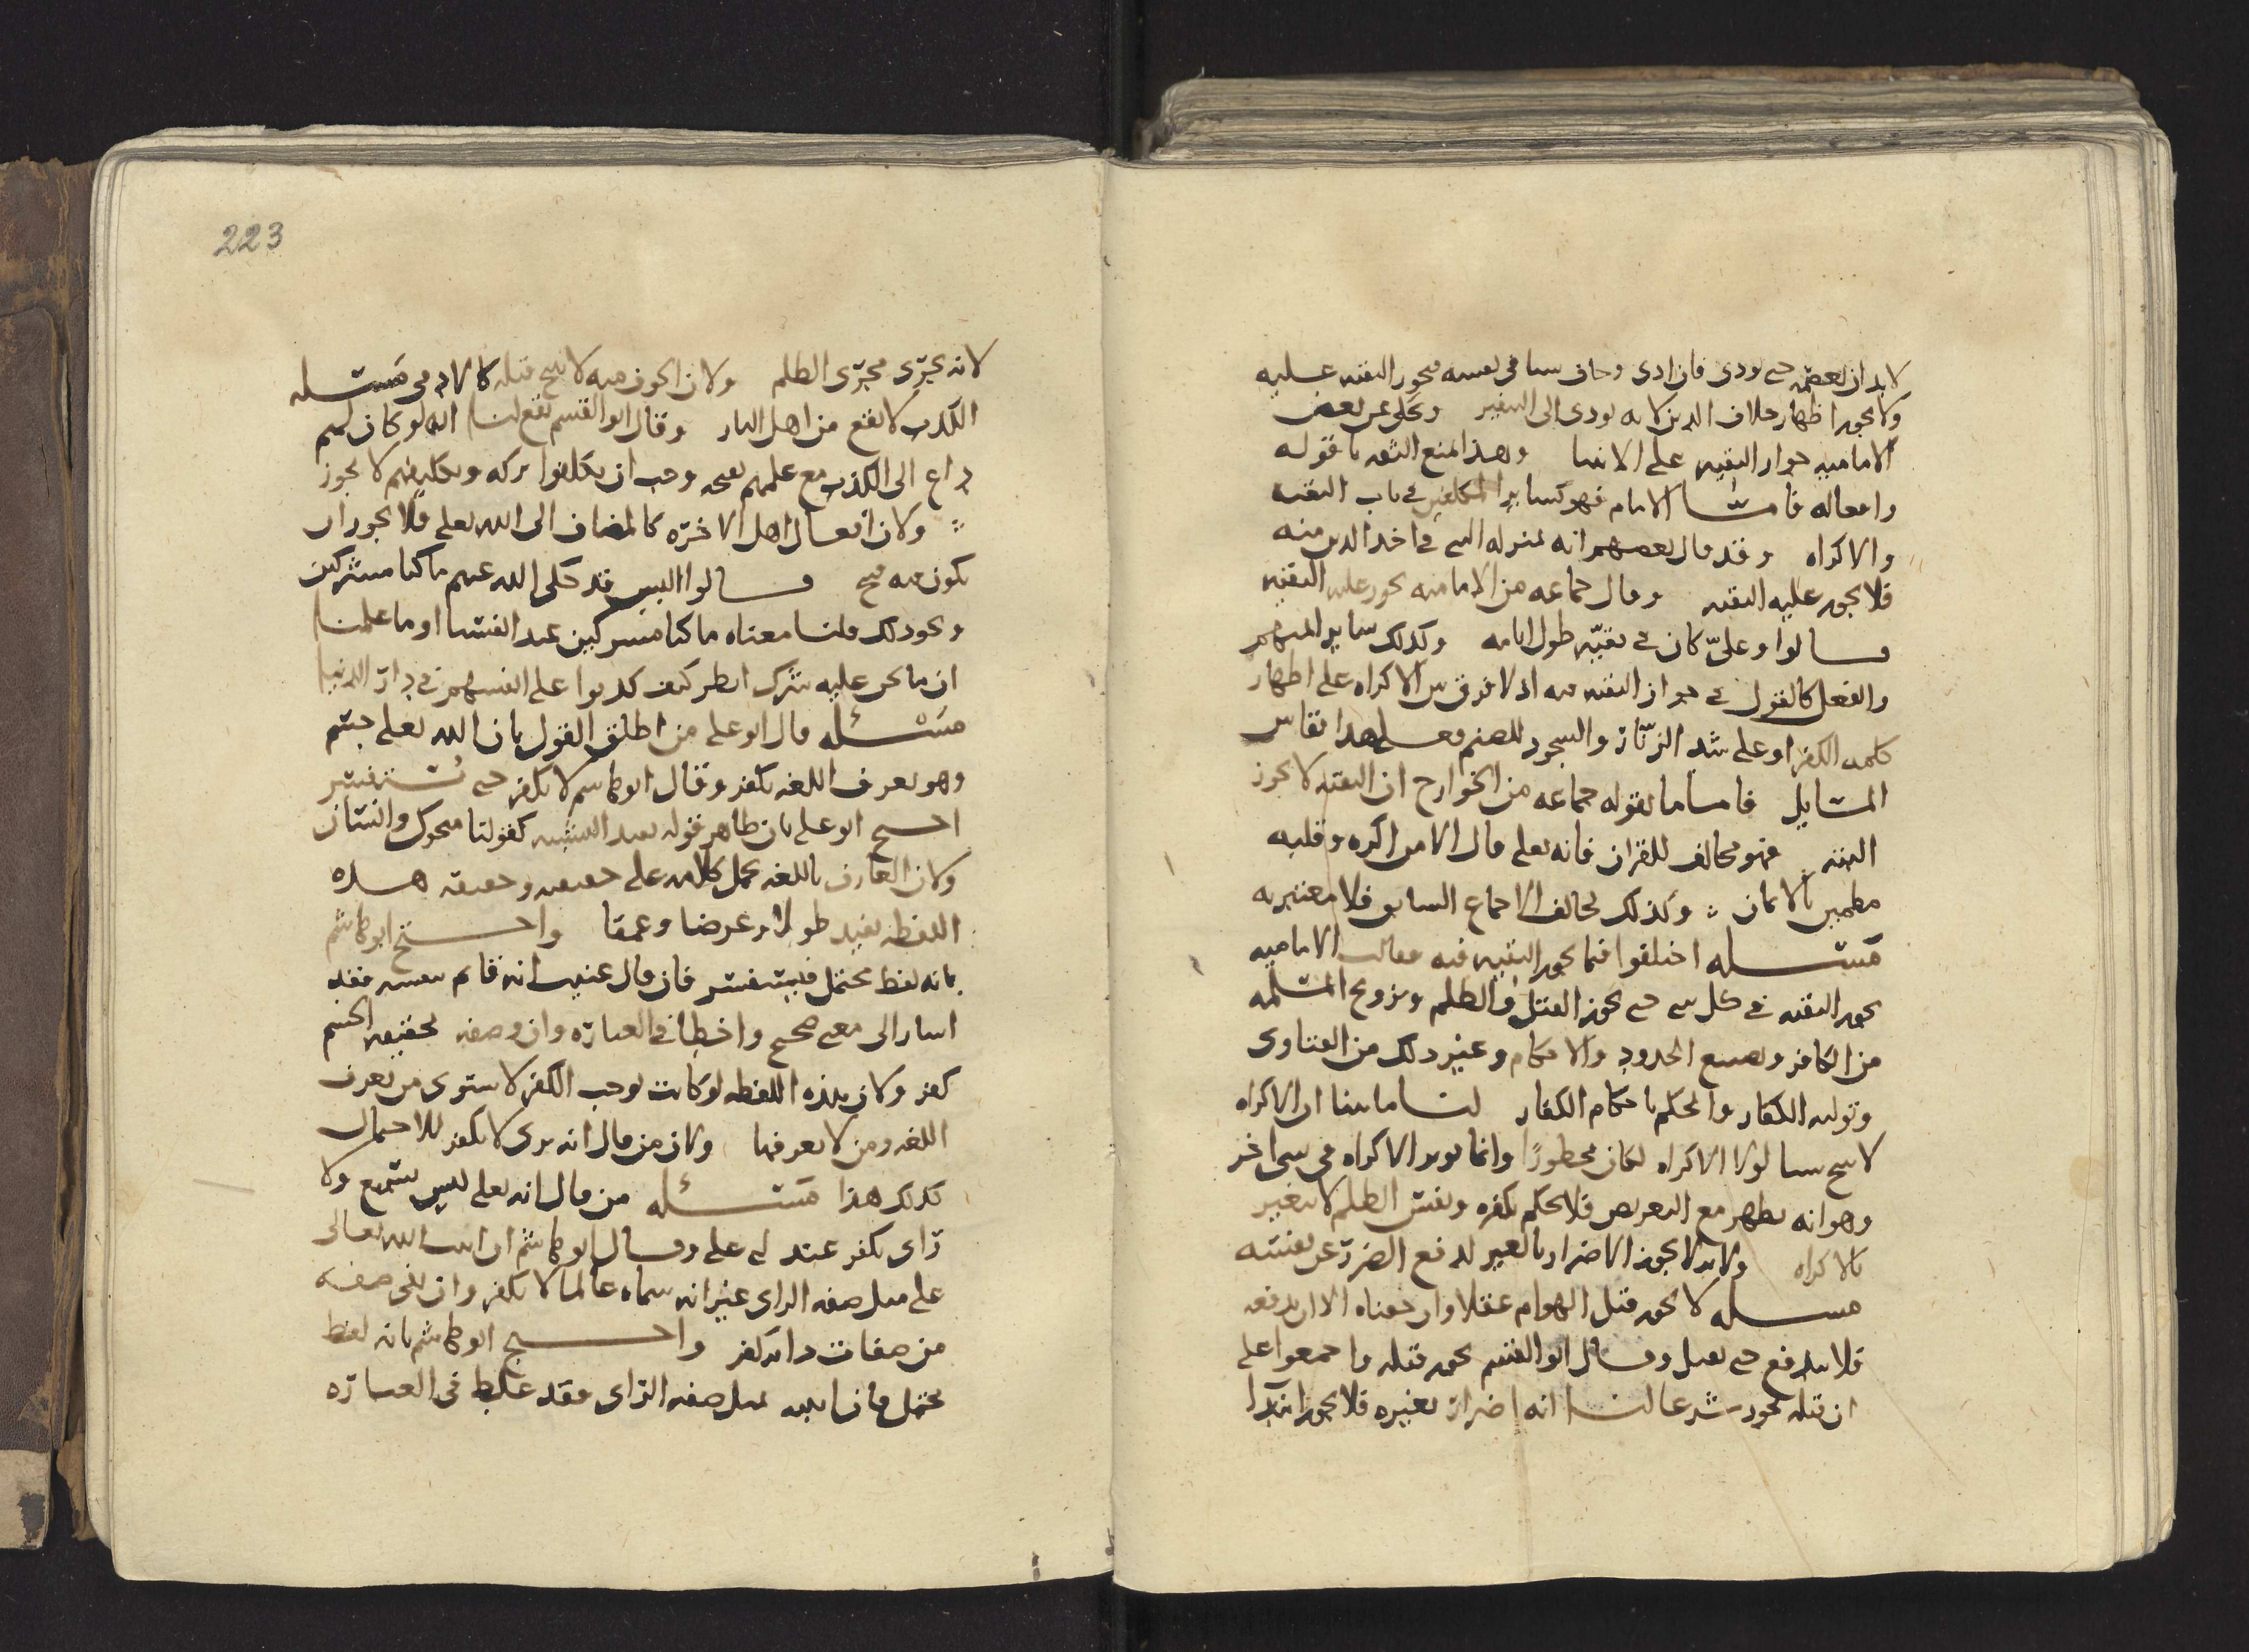 لا بد ان يعصمه حتى يودى فان ادى وخاف سيا فى نفسه فيجوز التقيه عليه
ولا يجوز اظهار خلاف الدين لانه يودى الى التنفير وحكى عن بعض
الاماميه جواز التقيه على الانبيا وهذا يمنع الثقه باقواله
وافعاله فامـا الامام فهو كساير المكلفين فى باب التقيه
والاكراه وقد قال بعضهم انه بمنزله النبى فى اخذ الدين منه
فلا يجوز عليه التقيه وقال جماعه من الاماميه يجوز عليه التقيه
قـالوا وعلىّ كان فى تقيّه طول ايامه وكذلك ساير ايمتهم
والفعل كالقول فى جواز التقيه فيه اذ لا فرق بين الاكراه على اظهار
كلمه الكفر او على شد الزنّار والسجود للصنم فعلى هذا تقاس
المسايل فاما ما يقوله جماعه من الخوارج ان التقيه لا يجوز
البته فهو مخالف للقران فانه تعلى قال الا من اكره وقلبه
مطمين بالايمان وكذلك يخالف الاجماع السابق فلا معتبر به
مسـله اختلفوا فيما يجوز التقيه فيه فقالت الاماميه
يجوز التقيه فى كل شى حتى يجوز القتل والظلم وتزويج المسلمه
من الكافر وتضييع الحدود والاحكام وغير ذلك من الفتاوى
وتوليه الكفار والحكم باحكام الكفار لنـا ما بينا ان الاكراه
لا يبيح سيا لولا الاكراه لكان محظورًا وانما يوثر الاكراه فى شى اخر
وهو انه يظهر مع التعريض فلا يحكم بكفره ونفس الظلم لا يتغير
بالاكراه ولانه لا يجوز الاضرار بالغير لدفع الضرر عن نفسه
مسـله لا يجوز قتل الهوام عقلا وان خفناه الا ان يدفعه
فلا يندفع حتى يقتل وقـال ابو القسم يجوز قتله واجمعوا على
ان قتله يجوز شرعا لنـا انه اضرار بغيره فلا يجوز ابتدا
223
لانه يجرى مجرى الظلم ولان الخوف منه لا يبيح قتله كالادمى مسـله
الكذب لا يقع من اهل النار وقال ابو القسم يقع لنا انه لو كان لهم
داع الى الكذب مع علمهم بقبحه وجب ان يكلفوا تركه وتكليفهم لا يجوز
ولان افعال اهل الاخره كالمضاف الى الله تعلى فلا يجوز ان
يكون فيه قبيح قـالوا اليس قد حكى الله عنهم ما كنا مشركين
ونحو ذلك قلنـا معناه ما كنا مشركين عند انفسنا او ما علمنا
ان ما نحن عليه شرك انظر كيف كذبوا على انفسهم فى دار الدنيا
مسـئله قال ابو على من اطلق القول بان الله تعلى جسم
وهو يعرف اللغه يكفر وقال ابو هاشم لا يكفر حتى يُستفسر
احتـج ابو على بان ظاهر قوله يفيد التشبيه كقولنا متحرك وانسان
ولان العارف باللغه يحمل كلامه على حقيقته وحقيقه هـذه
اللفظه يفيد طولا وعرضا وعمقا واحـتج ابو هاشم
بانه لفظ محتمل فيستفسر فان قال عنيت انه قايم بنفسه فقد
اشار الى معنى صحيح واخطا فى العباره وان وصفه بحقيقه الجسم
كفر ولان هذه اللفظه لو كانت توجب الكفر لاستوى من يعرف
اللغه ومن لا يعرفها ولان من قال انه يرى لا يكفر للاحتمال
كذلك هذا مسـئله من قال انه تعلى ليس بسميع ولا
راى يكفر عند ابى على وقـال ابو هاشم ان اثبت الله تعالى
على مثل صفه الراى غير انه سماه عالما لا يكفر وان نفى صفه
من صفات ذاته كفر واحـتج ابو هاشم بانه لفظ
محتمل فان اثبته بمثل صفه الراى فقد غلط فى العباره